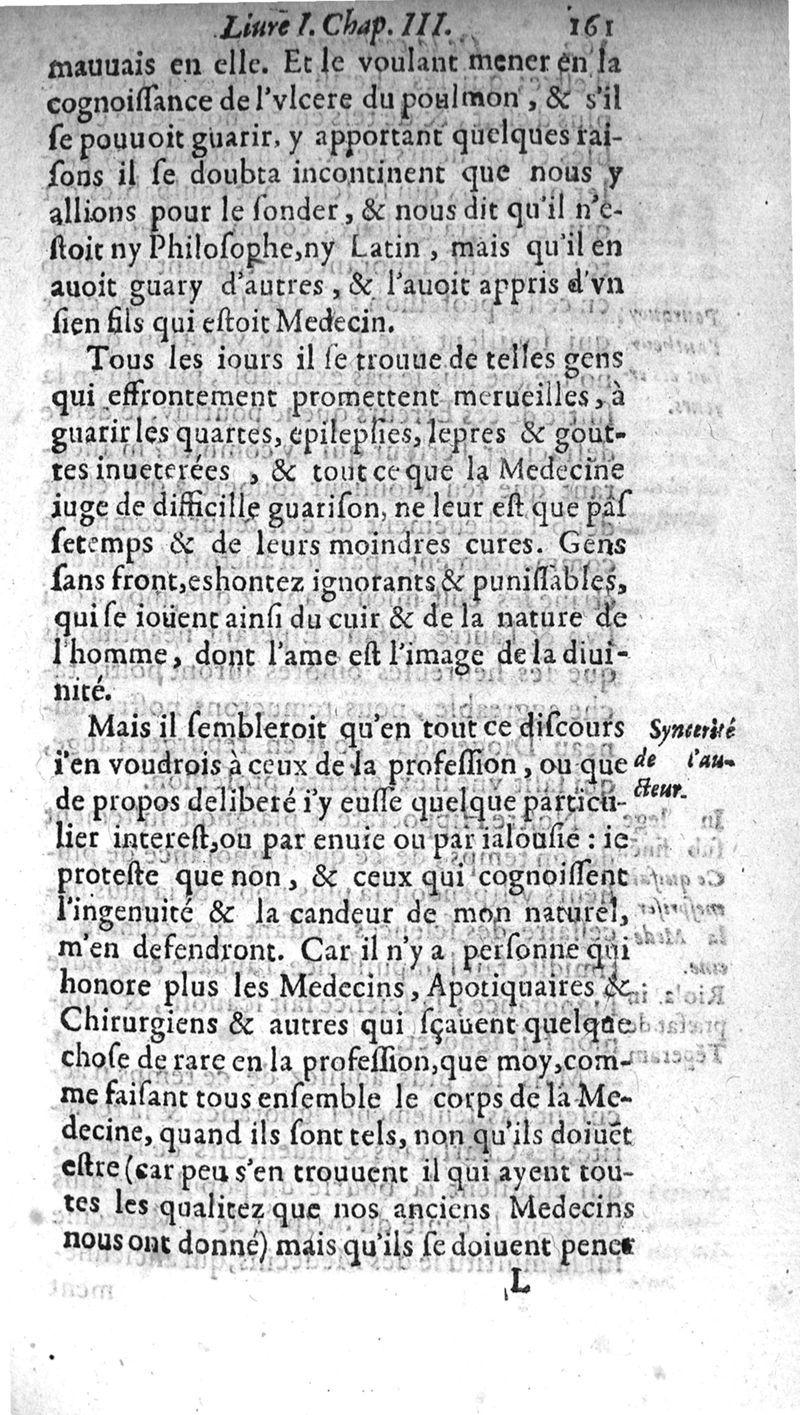 Liure I. Chap. III. 161
mauuais en elle. Et le voulant mener en la
cognoiſſance de l'vlcere du poulmon, & s'il
ſe pouuoit guarir, y apportant quelques rai-
ſons il ſe doubta incontinent que nous y
allions pour le ſonder, & nous dit qu'il n'e-
ſtoit ny Philoſophe, ny Latin, mais qu'il en
auoit guary d'autres, & l'auoit appris d'vn
ſien fils qui eſtoit Medecin.
Tous les iours il ſe trouue de telles gens
qui effrontement promettent merueilles, à
guarir les quartes, epilepſies, lepres & gout-
tes inueterées, & tout ce que la Medecine
iuge de difficille guariſon, ne leur eſt que paſ
ſetemps & de leurs moindres cures. Gens
ſans front, eshontez ignorants & puniſſables,
qui ſe ioüent ainſi du cuir & de la nature de
l'homme, dont l'ame eſt l'image de la diui-
nité.
Mais il ſembleroit qu'en tout ce diſcours
i'en voudrois à ceux de la profeſſion, ou que
de propos deliberé i'y euſſe quelque particu-
lier intereſt, ou par enuie ou par ialouſie : ie
proteſte que non, & ceux qui cognoiſſent
l'ingenuité & la candeur de mon naturel,
m'en defendront. Car il n'y a perſonne qui
honore plus les Medecins, Apotiquaires &
Chirurgiens & autres qui ſçauent quelque
choſe de rare en la profeſſion, que moy, com-
me faiſant tous enſemble le corps de la Me-
decine, quand ils ſont tels, non qu'ils doiuēt
eſtre (car peu s'en trouuent il qui ayent tou-
tes les qualitez que nos anciens Medecins
nous ont donné) mais qu'ils ſe doiuent pener
L
Syncerité
de l'au-
cteur.